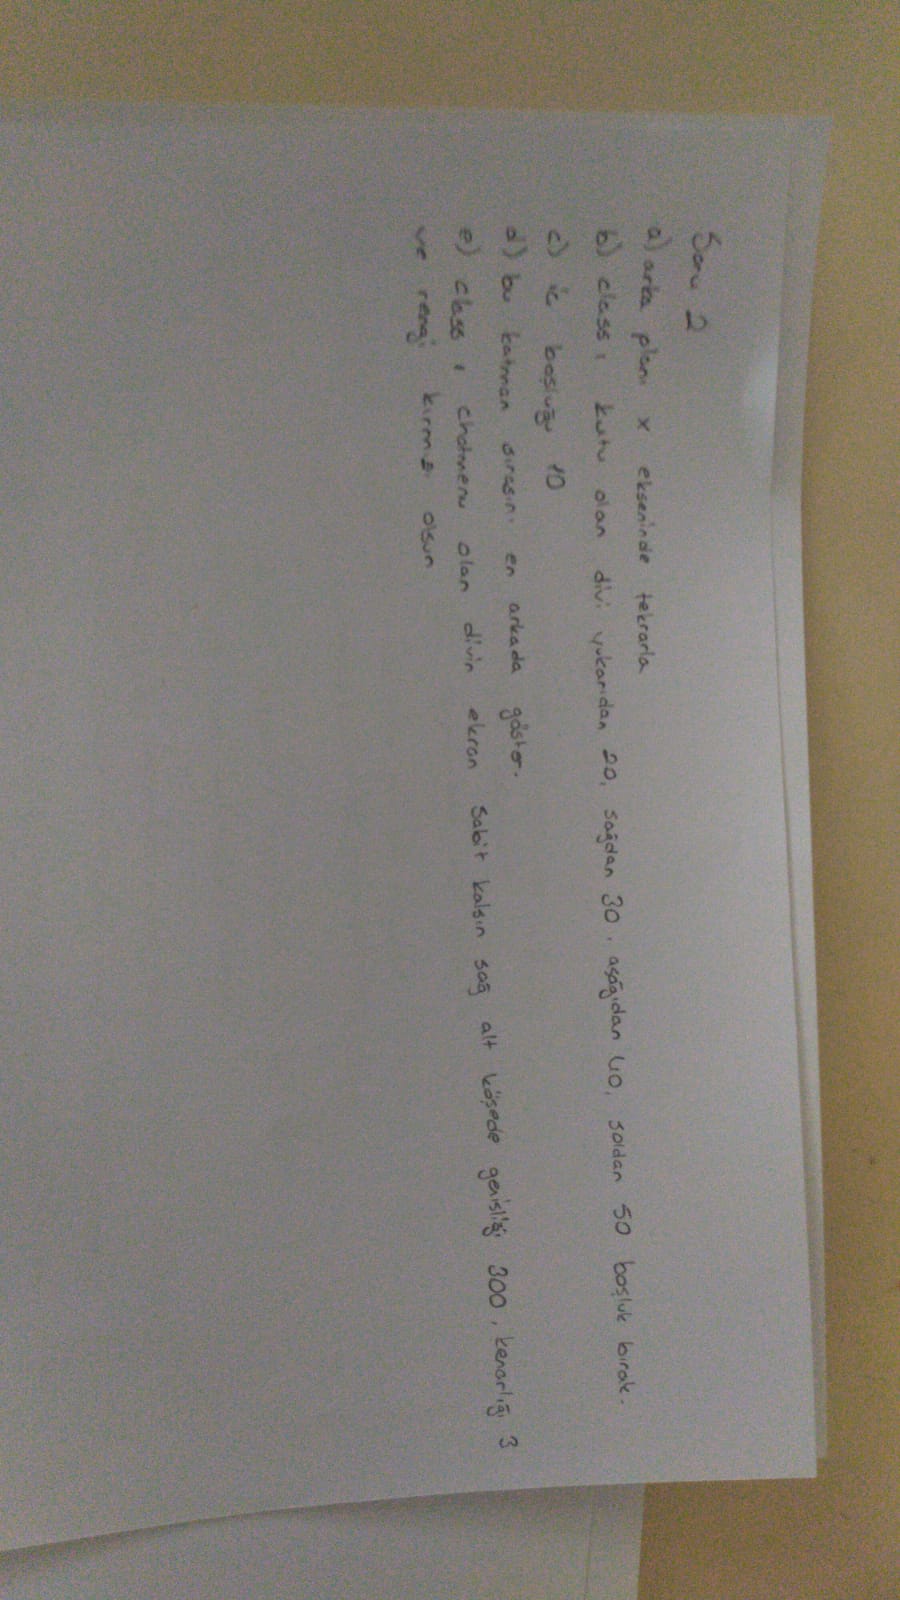 Soru 2
a) arka planı x ekseninde tekrarla
b) classı kutu olan divi yukarıdan 20, sağdan 30, aşağıdan 40, soldan 50 boşluk bırak.
c) iç boşluğu 10
d) bu katman sırasını en arkada göster.
e) classı chatmenu olan divin ekran sabit kalsın sağ alt köşede genişliği 300, kenarlığı 3
ve rengi kırmızı olsun